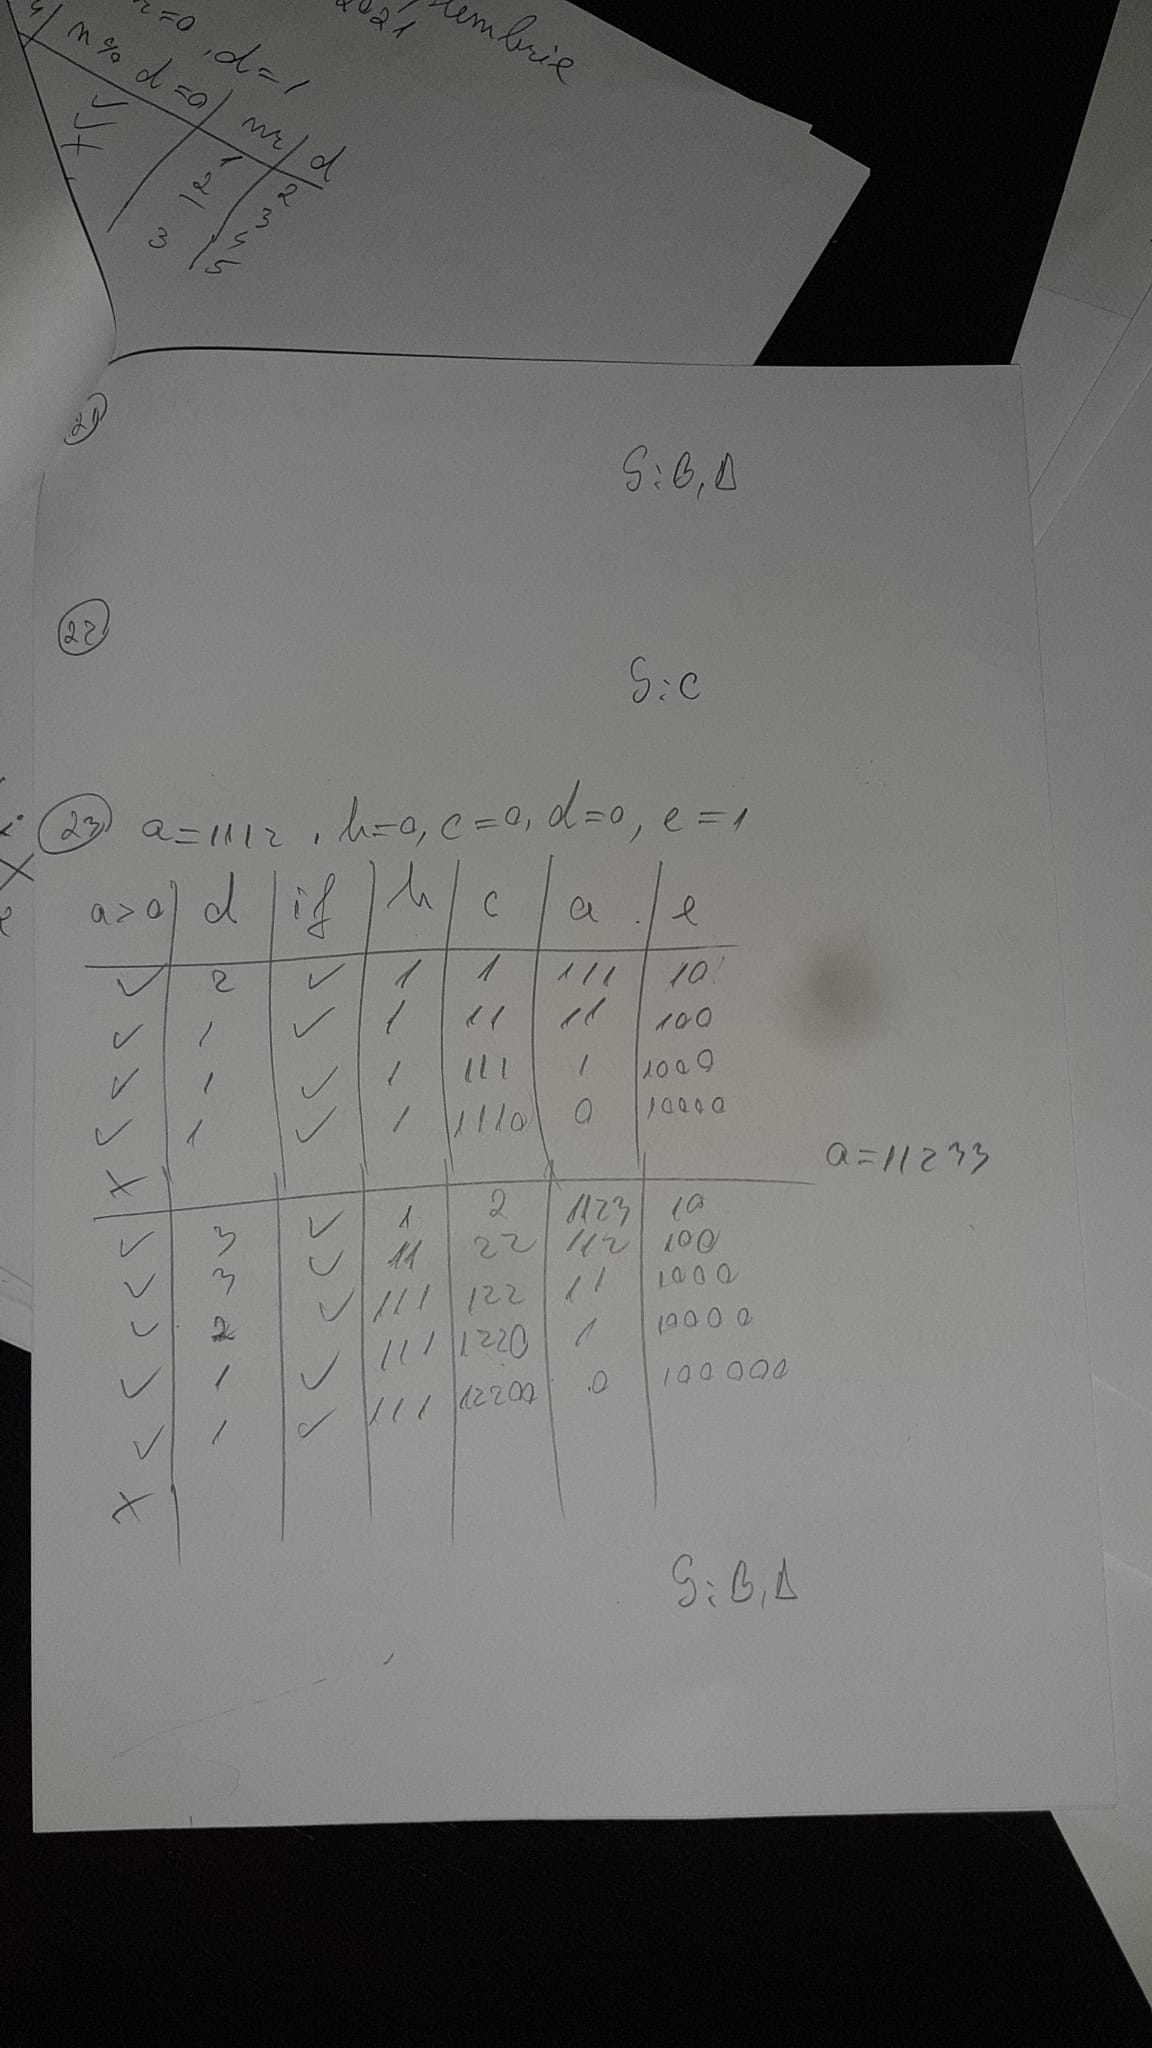 2021
r=0, d=1
n % d=0 | nr | d
✓ 1 2
✓ 2 3
X 3 4
5
21
S: B, D
22
S: C
23 a=1112, b=0, c=0, d=0, e=1
a>0 | d | if | b | c | a | e
✓ 2 ✓ 1 1 111 10
✓ 1 ✓ 1 11 11 100
✓ 1 ✓ 1 111 1 1000
✓ 1 ✓ 1 1110 0 10000
X
a=11233
✓ 3 ✓ 1 2 1123 10
✓ 3 ✓ 11 22 112 100
✓ 2 ✓ 111 122 11 1000
✓ 1 ✓ 111 1220 1 10000
✓ 1 ✓ 111 12200 0 100000
X
S: B, D